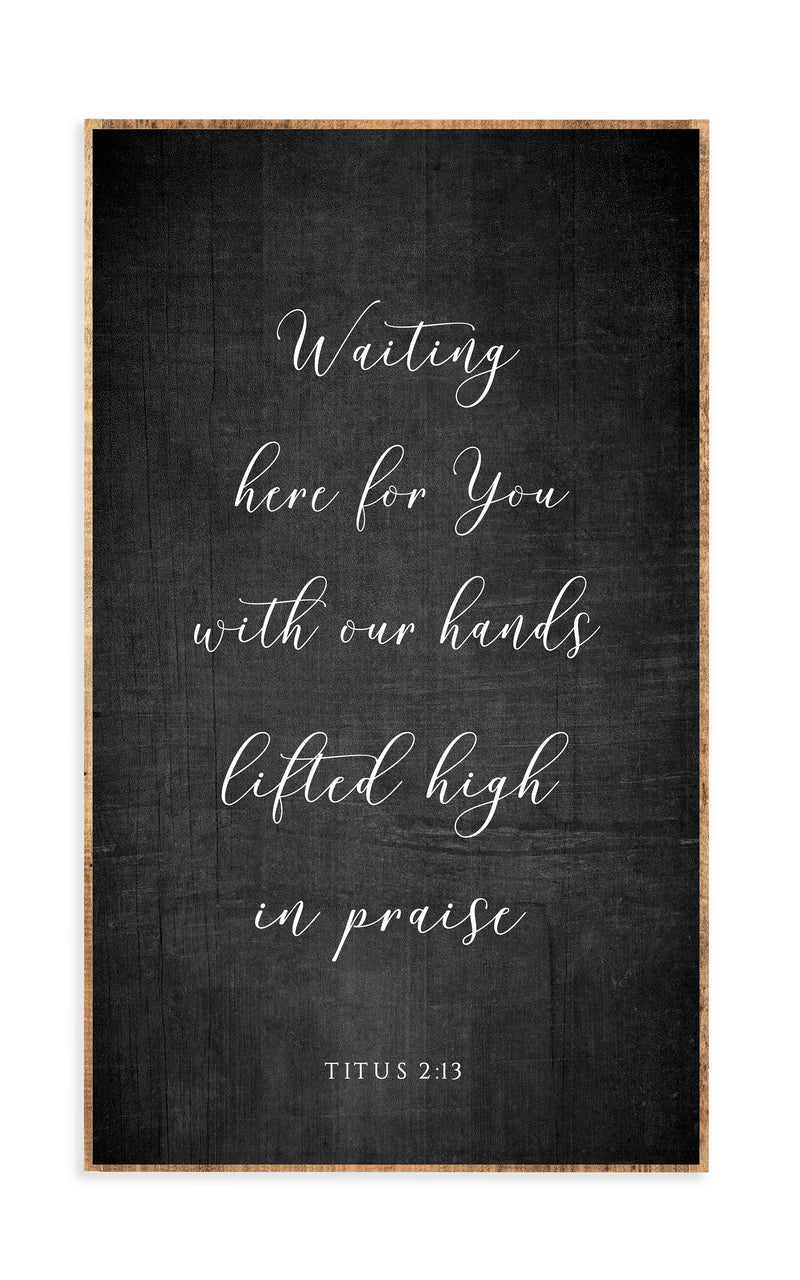 Waiting
here for You
with our hands
lifted high
in praise
TITUS 2:13